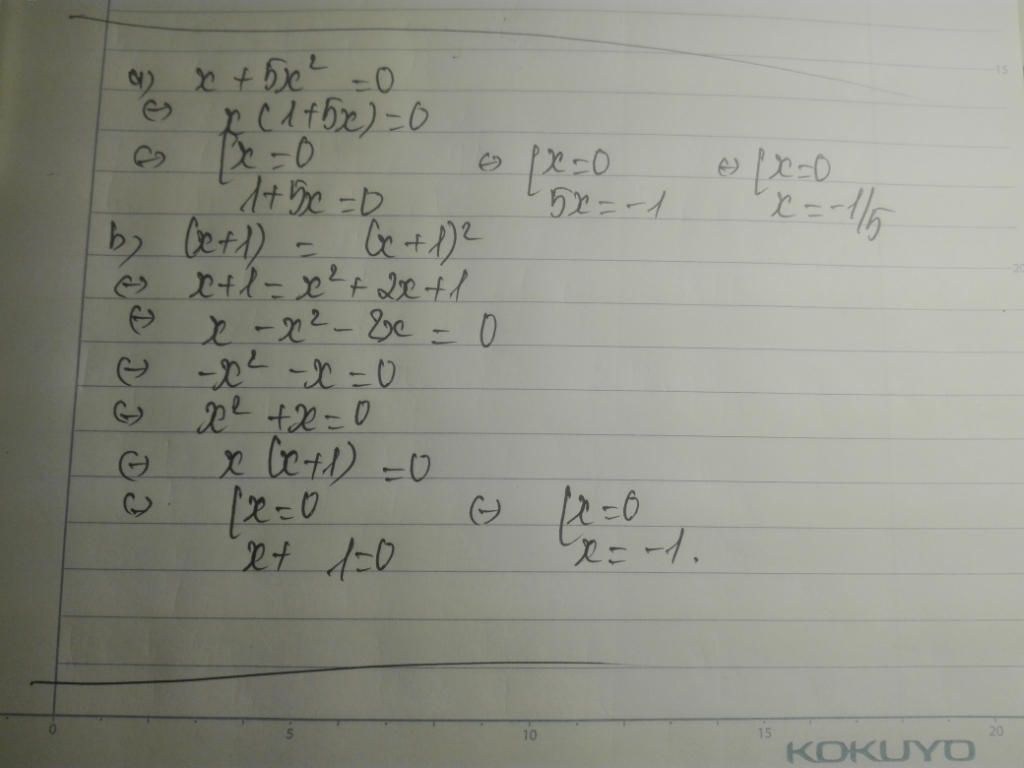 a) x + 5x² = 0
⇔ x (1+5x) = 0
⇔ [x = 0 ⇔ [x = 0 ⇔ [x = 0
1+5x = 0 5x = -1 x = -1/5
b) (x+1) = (x+1)²
⇔ x+1 = x² + 2x+1
⇔ x - x² - 2x = 0
⇔ -x² - x = 0
⇔ x² + x = 0
⇔ x (x+1) = 0
⇔ [x = 0 ⇔ [x = 0
x + 1 = 0 x = -1.
15
20
0 5 10 15 20
KOKUYO